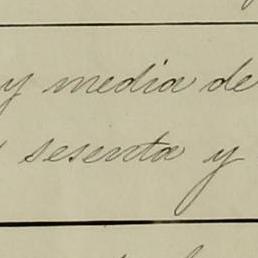 y media de
sesenta y